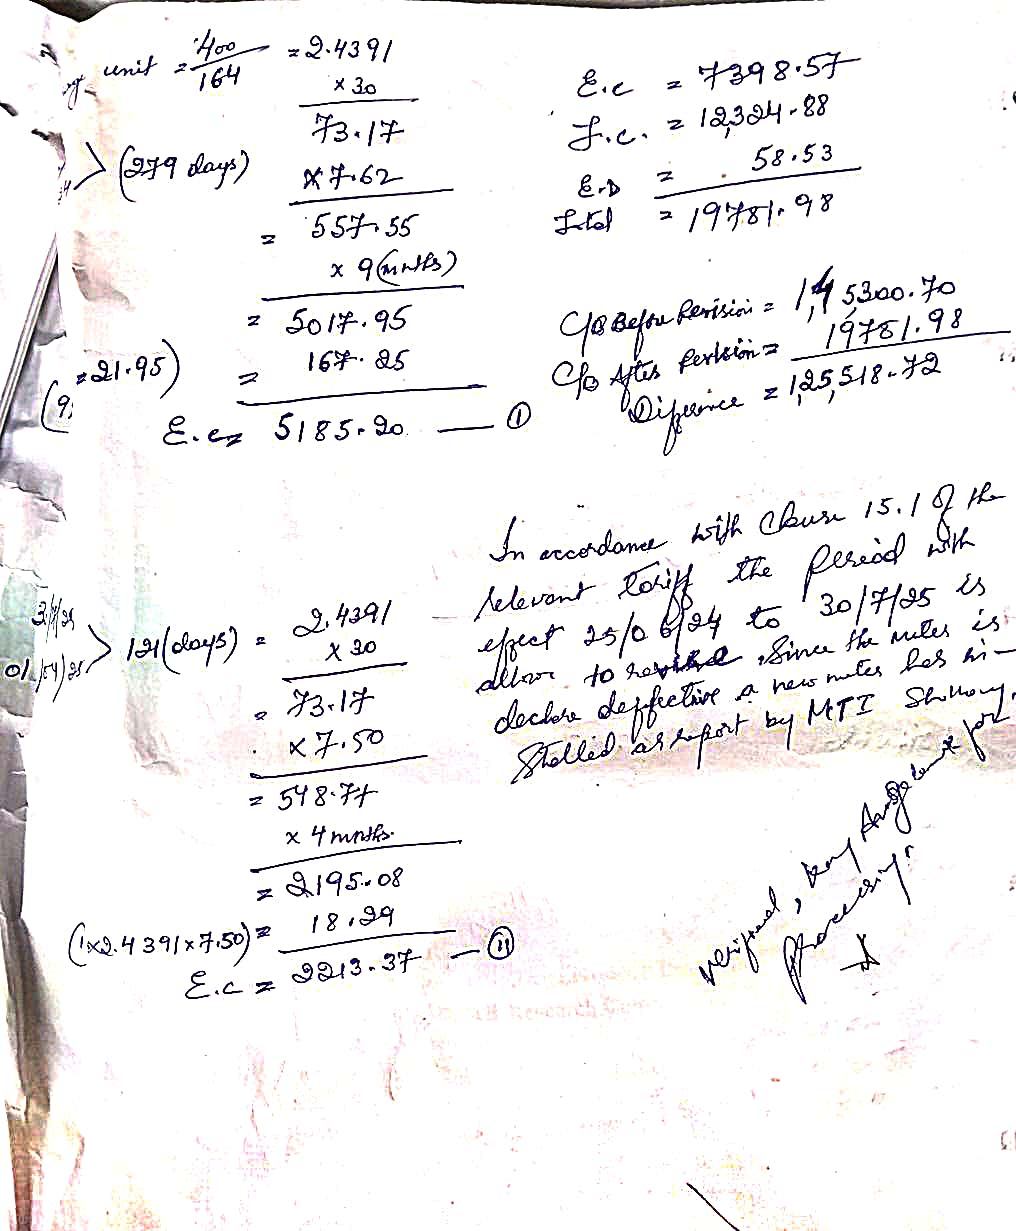 unit = 400/164 = 2.4391
x 30
73.17
(279 days) x 7.62
= 557.55
x 9 (mnths)
= 5017.95
= 21.95) = 167.25
E.c = 5185.20 — (I)
E.c = 7398.57
F.c. = 12,324.88
E.D = 58.53
Total = 19781.98
C/B Before Revision = 1,45300.70
C/B After Revision = 19781.98
Diference = 1,25,518.72
121 (days) = 2.4391
01/04/25
x 30
= 73.17
x 7.50
= 548.77
x 4 mnths.
= 2195.08
(1x2.4391x7.50) = 18.29
E.c = 2213.37 — (II)
In accordance with Clause 15.1 of the
relevant tariff the Period with
effect 25/06/24 to 30/7/25 is
allow to revised. Since the meter is
declare deffective a new meter has in-
stalled as report by MTI
verified,
processing.